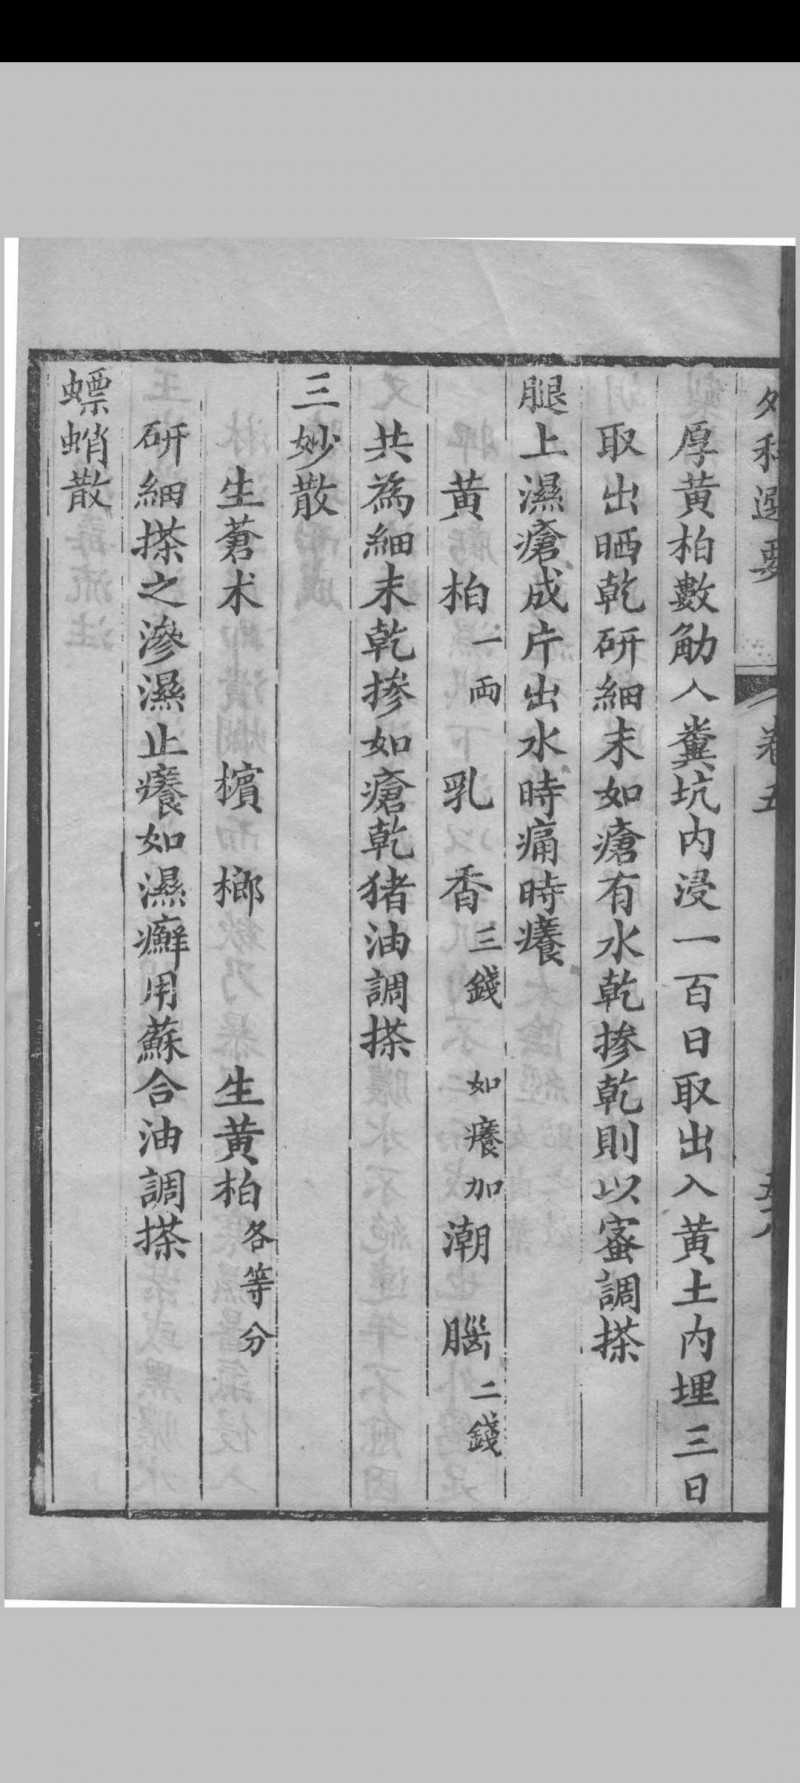 外科選要 卷五
厚黄柏數觔入糞坑内浸一百日取出入黄土内埋三日
取出晒乾研細末如瘡有水乾摻乾則以蜜調搽
腿上濕瘡成片出水時痛時癢
黄柏一兩 乳香三錢 如癢加潮腦二錢
共為細末乾摻如瘡乾猪油調搽
三妙散
生蒼术 檳榔 生黄柏各等分
研細搽之滲濕止癢如濕癬用蘇合油調搽
螵蛸散